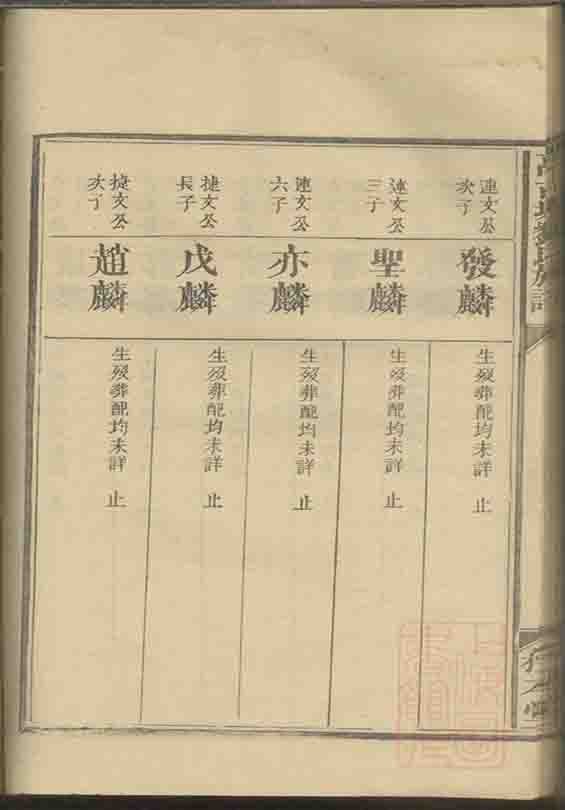 連文公
次子
發麟
生歿葬配均未詳 止
連文公
三子
聖麟
生歿葬配均未詳 止
連文公
六子
亦麟
生歿葬配均未詳 止
捷文公
長子
戊麟
生歿葬配均未詳 止
捷文公
次子
趙麟
生歿葬配均未詳 止